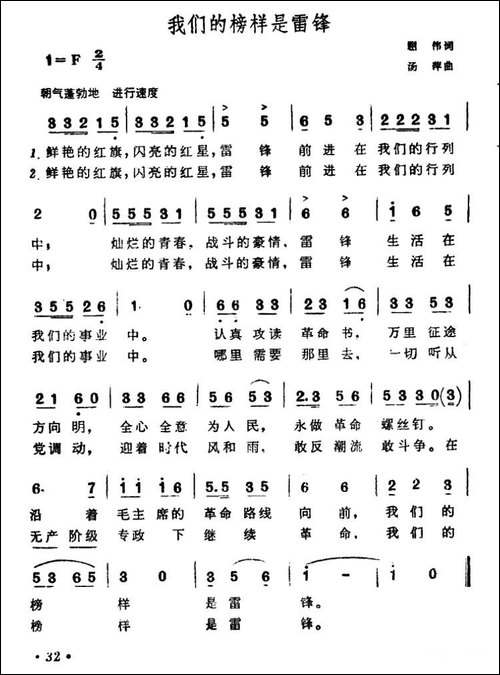 我们的榜样是雷锋
1=F 2/4
剧伟词
汤萍曲
朝气蓬勃地 进行速度
3 3 2 1 5 | 3 3 2 1 5 | 5 5 | 6 5 3 | 2 2 2 3 1 |
1.鲜艳的红旗,闪亮的红星,雷 锋 前 进 在 我们的行列
2.鲜艳的红旗,闪亮的红星,雷 锋 前 进 在 我们的行列
2 0 | 5 5 5 3 1 | 5 5 5 3 1 | 5 6 | 1 6 5 |
中; 灿烂的青春,战斗的豪情,雷 锋 生 活 在
中; 灿烂的青春,战斗的豪情,雷 锋 生 活 在
3 5 5 2 6 | 1. 0 | 6 6 3 3 | 2 3 1 6 | 3 3 5 3 |
我们的事业 中。 认真 攻读 革命 书, 万里 征途
我们的事业 中。 哪里 需要 那里 去, 一切 听从
2 1 6 0 | 3 3 6 6 | 5 6 5 3 | 2.3 5 6 | 5 3 3 0 (3) |
方向 明, 全心 全意 为人 民, 永做 革命 螺丝钉。
党调 动, 迎着 时代 风和 雨, 敢反 潮流 敢斗争。在
6. 7 | 1 1 1 6 | 5.5 3 5 | 6 6 | 2 2 3 |
沿 着 毛主 席的 革命 路线 向 前, 我 们 的
无产 阶级 专政 下 继 续 革 命, 我 们 的
5 3 6 5 | 3 0 | 0 3 3 5 | 1 - | 1 0 ‖
榜 样 是 雷 锋。
榜 样 是 雷 锋。
· 32 ·